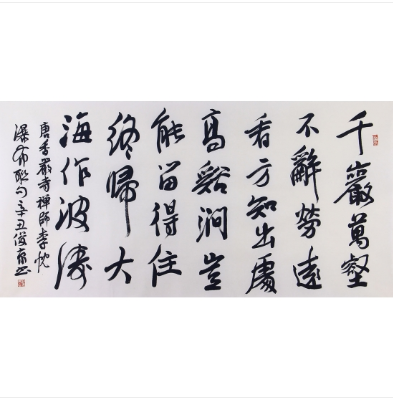 千巖萬壑
不辭勞遠
看方知出處
高谿澗豈
能留得住
終歸大
海作波濤
唐香嚴寺禪師李忱
瀑布聯句辛丑俊书